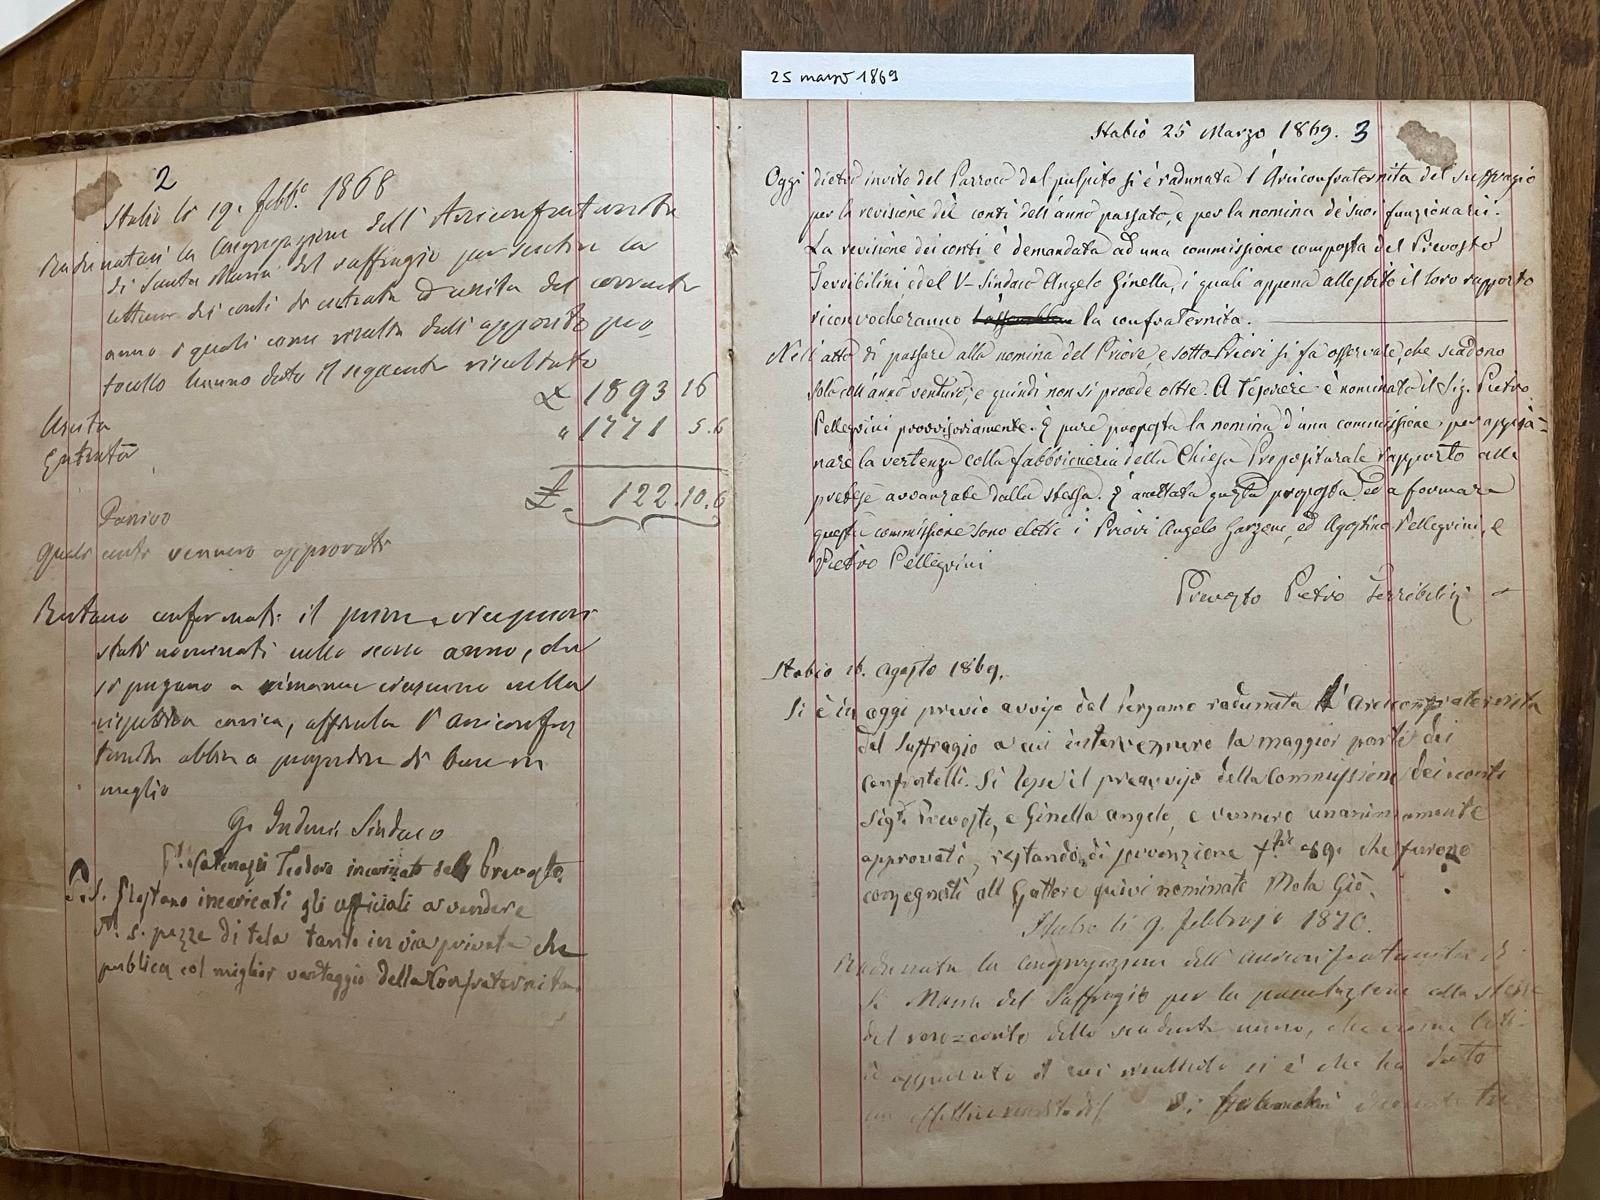 25 marzo 1869
2
Stabio li 19. Febb.º 1868
Radunatasi la Congregazione dell'Arciconfraternita
di Santa Maria del suffragio per sentire la
lettura dei conti di entrata ed uscita del corrente
anno i quali come risulta dall'apposito pro
tocollo hanno dato il seguente risultato
Uscita £ 1893 16
Entrata " 1771 5.6
£. 122.10.6
Passivo
quali conti vennero approvati
Restano confermati il priore e vicepriori
stati nominati nello scorso anno, che
si pregano a rimanere ciascuno nella
rispettiva carica, affinchè l'arciconfra
ternita abbia a progredire di bene in
meglio
Sindaco
Catenazzi Teodoro incaricato dal Prevosto.
P.S. Restano incaricati gli officiali a vendere
N. 5. pezze di tela tanto in via privata che
publica col miglior vantaggio della Confraternita.
Stabio 25 Marzo 1869. 3
Oggi dietro invito del Parroco dal pulpito si è radunata l'Arciconfraternita del suffragio
per la revisione dei conti dell'anno passato, e per la nomina de' suoi funzionari.
La revisione dei conti è demandata ad una commissione composta del Prevosto
Terribilini, e del V-Sindaco Angelo Ginella, i quali appena allestito il loro rapporto
riconvocheranno la confraternita.
Nell'atto di passare alla nomina del Priore, e sotto Priori si fa osservare, che scadono
solo coll'anno venturo, e quindi non si procede oltre. A Tesoriere è nominato il Sig. Pietro
Pellegrini provvisoriamente. È pure proposta la nomina d'una commissione per appia-
nare la vertenza colla fabbriceria della Chiesa Prepositurale rapporto alle
pretese avvanzate dalla stessa. È accettata questa proposta ed a formare
questa commissione sono eletti i Priori Angelo Garzoni, ed Agostino Pellegrini, e
Pietro Pellegrini
Prevosto Pietro Terribilini
Stabio 16. Agosto 1869.
Si è in oggi previo avviso del Pergamo radunata l'Arciconfraternita
del Suffragio a cui intervennero la maggior parte dei
confratelli. Si lesse il preavviso della Commissione dei conti
Sig.ri Prevosto, e Ginella angelo, e vennero unanimamente
approvati, restando di che furono
consegnati all Gattore quivi nominato Mola Giò.
Stabio li 9. febbrajo 1870.
Radunata la Congregazione dell'Arciconfraternita di
S. Maria del Suffragio per la presentazione alla stessa
del reso-conto dello scadente anno, che venne letto
e approvato il cui risultato si è che ha dato
di franchi